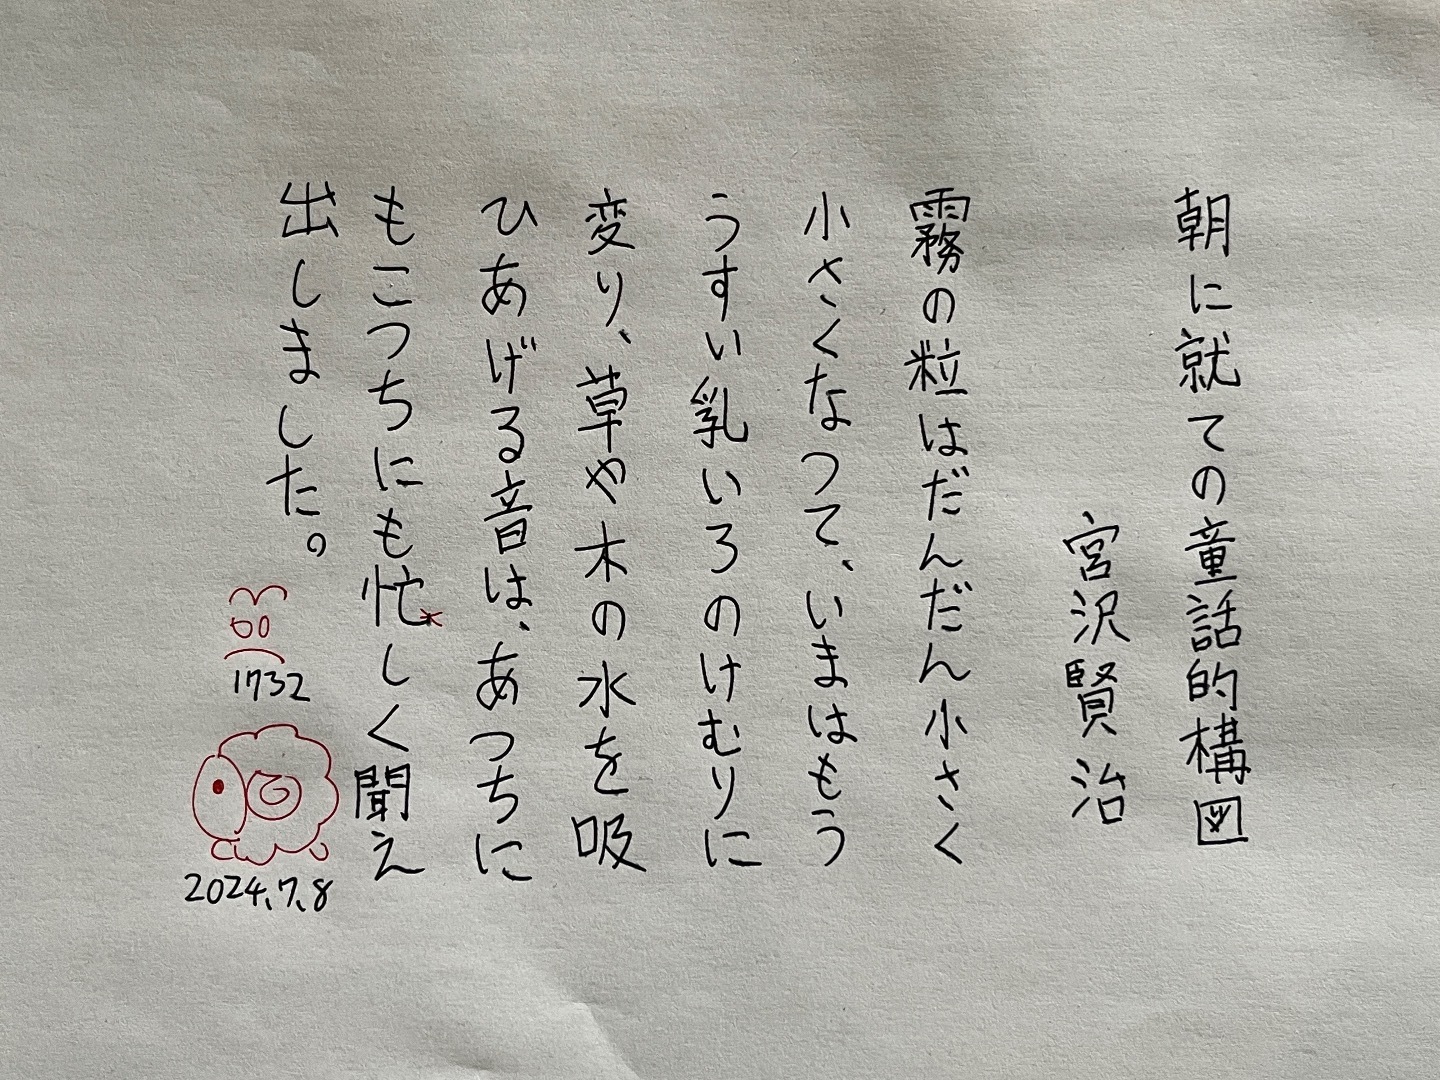 朝に就ての童話的構図
宮沢賢治
霧の粒はだんだん小さく
小さくなつて、いまはもう
うすい乳いろのけむりに
変り、草や木の水を吸
ひあげる音は、あつちに
もこつちにも忙しく聞え
出しました。
1732
2024.7.8